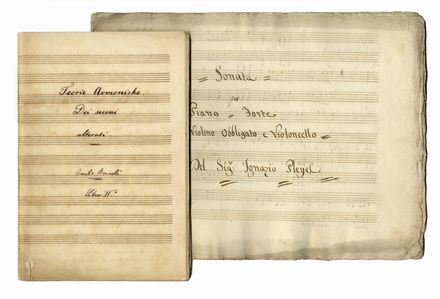 Teorie Armoniche
Dei suoni
alterati
Libro II°
= Sonata =
per
Piano = Forte
Violino Obbligato e Violoncello =
Del Sig.r Ignazio Pleyel